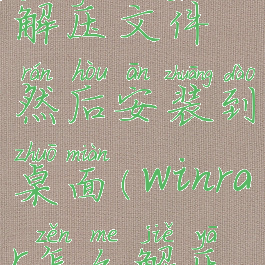 解压文件
rán hòu ān zhuāng dào
然后安装到
zhuō miàn
桌面(winra
zěn me jiě yā
r怎么解压